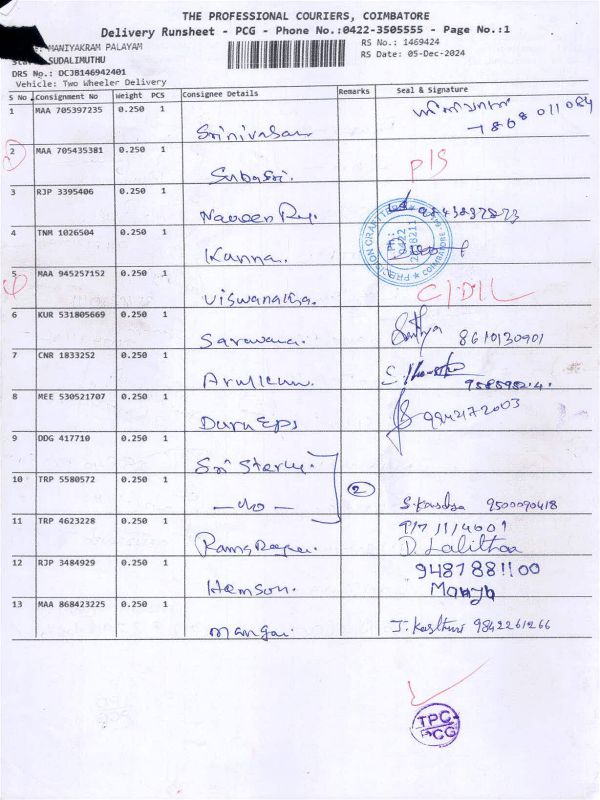 THE PROFESSIONAL COURIERS, COIMBATORE
Delivery Runsheet - PCG - Phone No.:0422-3505555 - Page No.:1
MANIYAKRAM PALAYAM RS No.: 1469424
SUDALIMUTHU RS Date: 05-Dec-2024
DRS No.: DCJB146942401
Vehicle: Two Wheeler Delivery
S No Consignment No Weight PCS Consignee Details Remarks Seal & Signature
1 MAA 705397235 0.250 1 Srinivasan
2 MAA 705435381 0.250 1 Subasri. P/S
3 RJP 3395406 0.250 1
4 TNM 1026504 0.250 1 Kanna.
5 MAA 945257152 0.250 1 Viswanatha. C/DIL
6 KUR 531805669 0.250 1 Saravana. Sathya 8610130901
7 CNR 1833252 0.250 1 Arulkum.
8 MEE 530521707 0.250 1 9942172003
9 DDG 417710 0.250 1
10 TRP 5580572 0.250 1 2 9500090418
11 TRP 4623228 0.250 1 D. Lalithaa
12 RJP 3484929 0.250 1 Hemson. 9487881100
13 MAA 868423225 0.250 1 Mangai. 9842261266
TPC
PCG